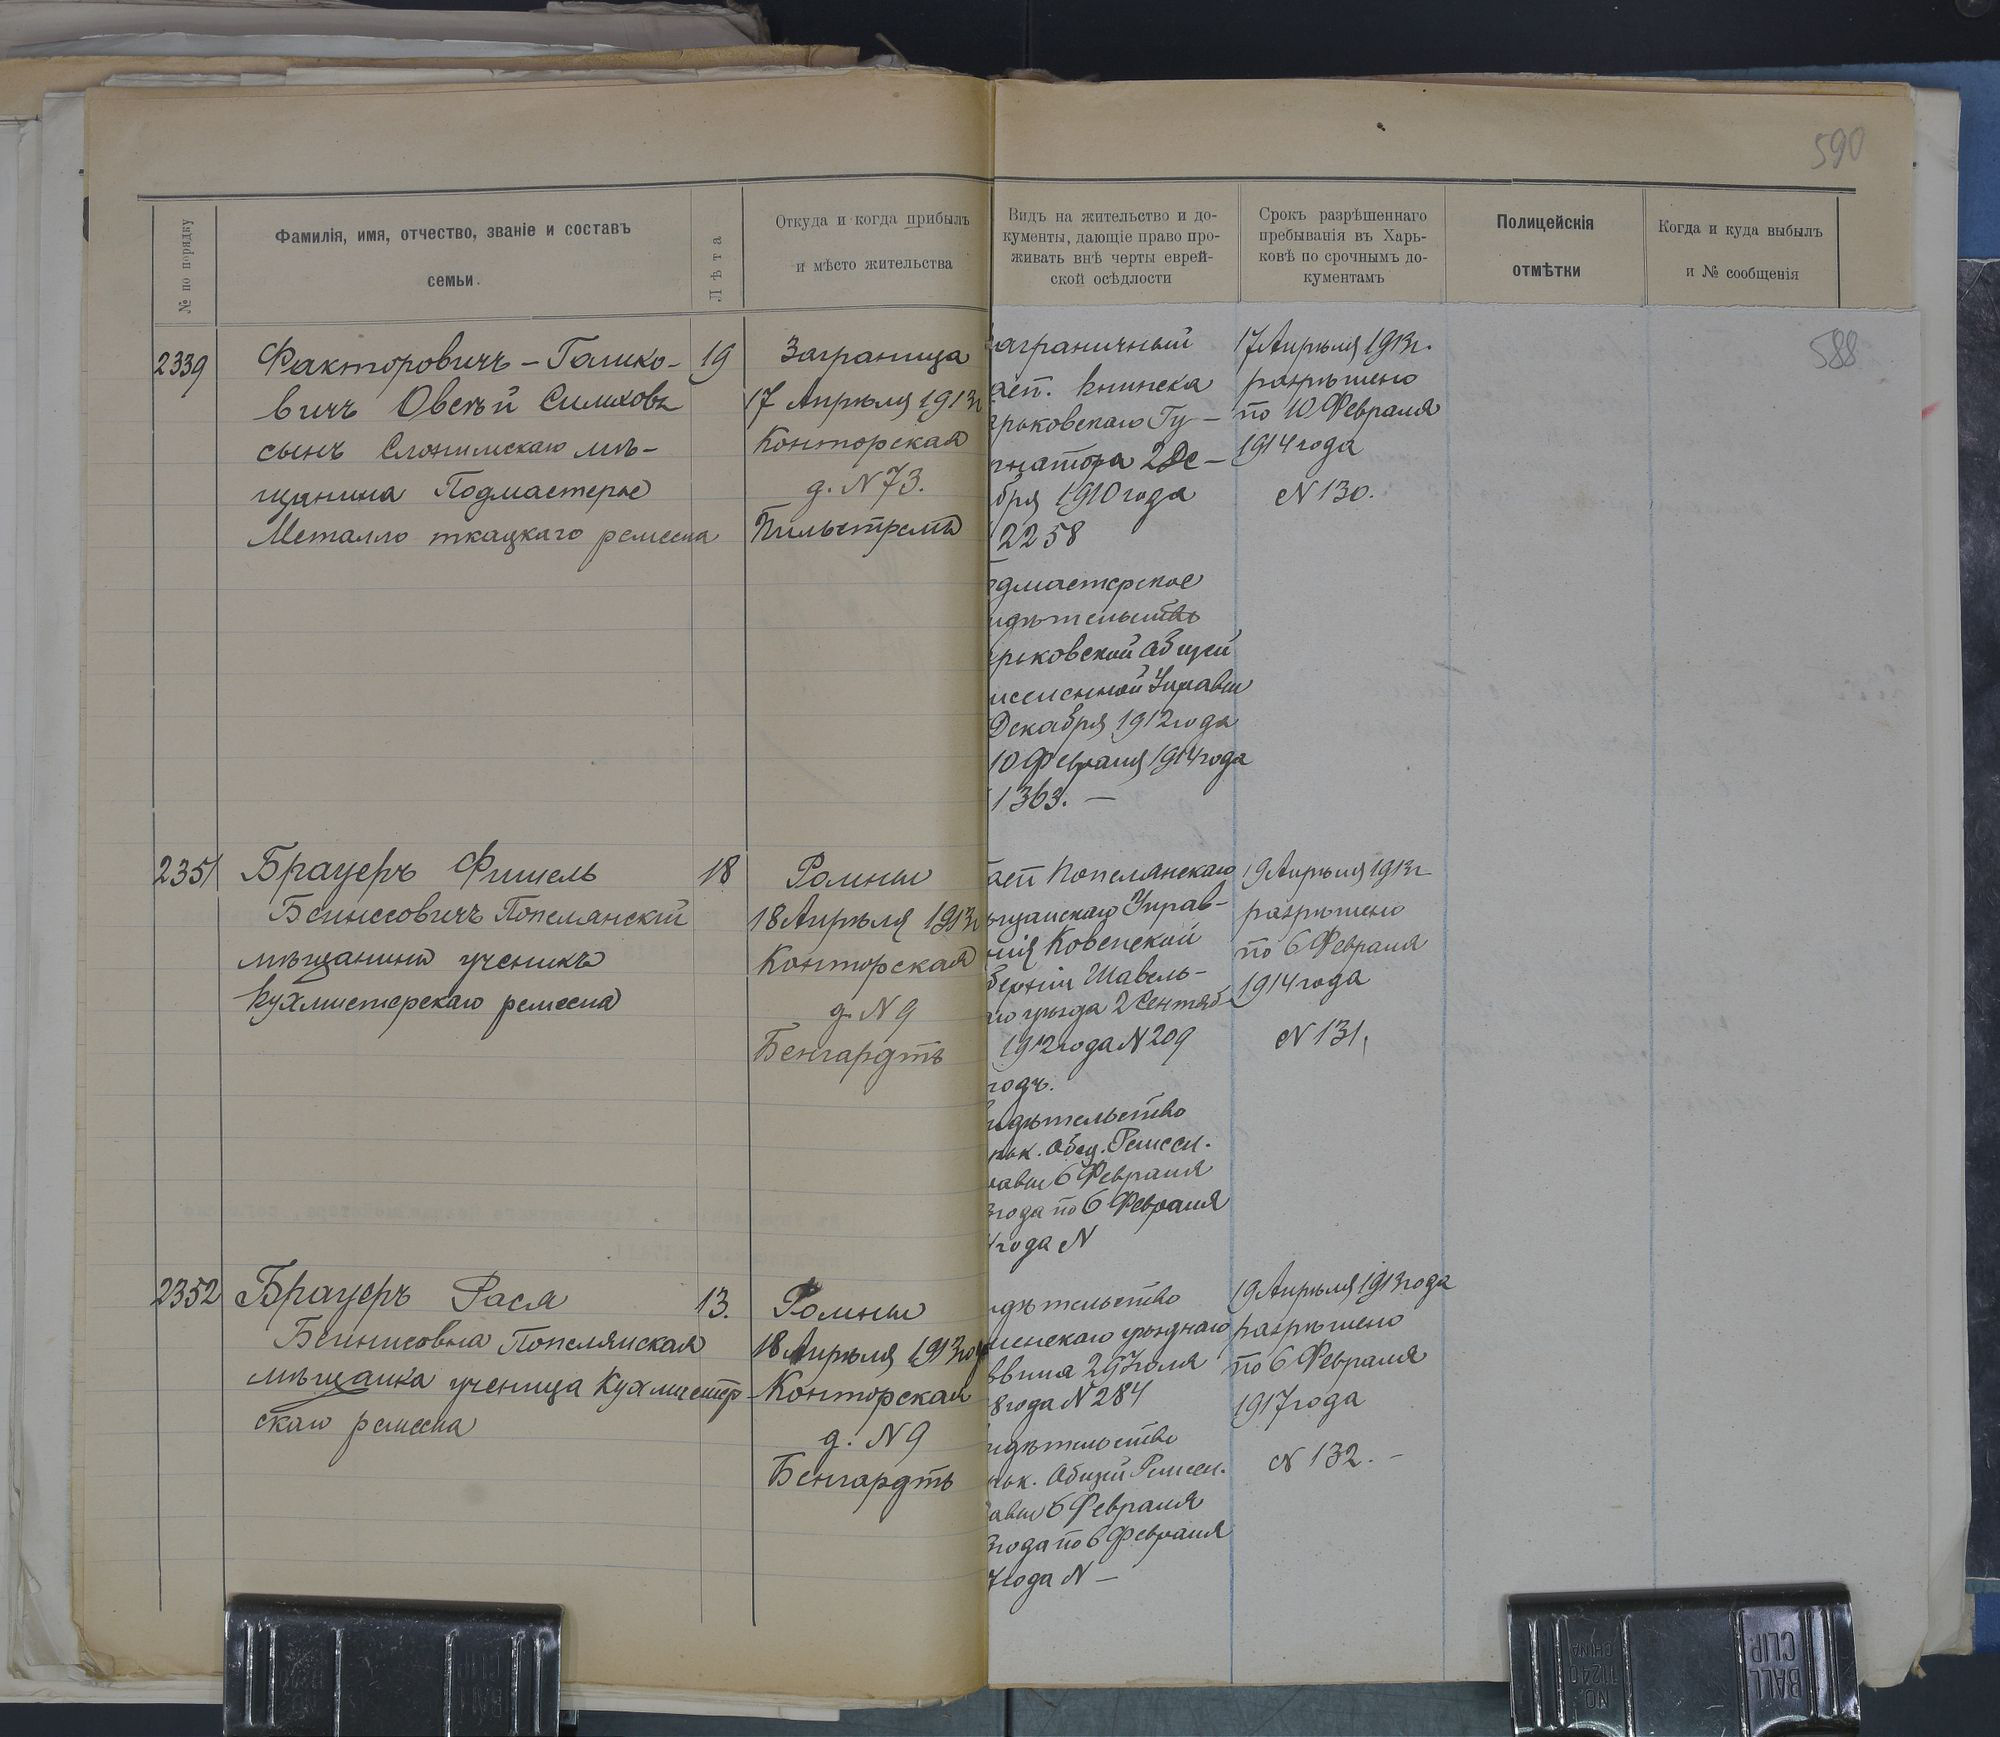 590
№ по порядку
Фамилія, имя, отчество, званіе и составъ
семьи.
Лѣта
Откуда и когда прибылъ
и мѣсто жительства
Видъ на жительство и до-
кументы, дающіе право про-
живать внѣ черты еврей-
ской осѣдлости
Срокъ разрѣшеннаго
пребыванія въ Харь-
ковѣ по срочнымъ до-
кументамъ
Полицейскія
отмѣтки
Когда и куда выбылъ
и № сообщенія
588
2339
Факторовичъ-Галико-
вичъ Овсѣй Симховъ
сынъ Слонимскаго мѣ-
щанина Подмастерье
Металло ткацкаго ремесла
19
Заграница
17 Апрѣля 1913г
Конторская
д. N 73.
Пильстремъ
аграничный
асп. книжка
арьковскаго Гу-
рнатора 2 Де-
бря 1910 года
2258
одмастерское
идѣтельство
арьковской Общей
месленной Управы
Декабря 1912 года
10 Февраля 1914 года
1363. —
17 Апрѣля 1913г.
разрѣшено
по 10 Февраля
1914 года
N 130.
2351
Брауеръ Фишель
Беинесовичъ Попелянскій
мѣщанинъ ученикъ
Кухмистерскаго ремесла
18
Ромны
18 Апрѣля 1913г
Конторская
д. N 9
Бенгардтъ
асп Попелянскаго
ѣщанскаго Управ-
нія Ковенской
берніи Шавель-
аго уѣзда 2 Сентяб-
1912 года N 209
годъ.
идѣтельство
рьк. Общ. Ремесл.
равы 6 Февраля
3 года по 6 Февраля
4 года N
19 Апрѣля 1913г
разрѣшено
по 6 Февраля
1914 года
N 131.
2352
Брауеръ Рася
Беинисовна Попелянская
мѣщанка ученица Кухмистер-
скаго ремесла
13.
Ромны
18 Апрѣля 1913 год
Конторская
д. N 9
Бенгардтъ
идѣтельство
менскаго уѣзднаго
аввина 29 Іюля
8 года N 284
идѣтельство
рьк. Общей Ремесл.
равы 6 Февраля
3 года по 6 Февраля
7 года N —
19 Апрѣля 1913 года
разрѣшено
по 6 Февраля
1917 года
N 132. —
BALL
CLIP
NO.
11240
CHINA